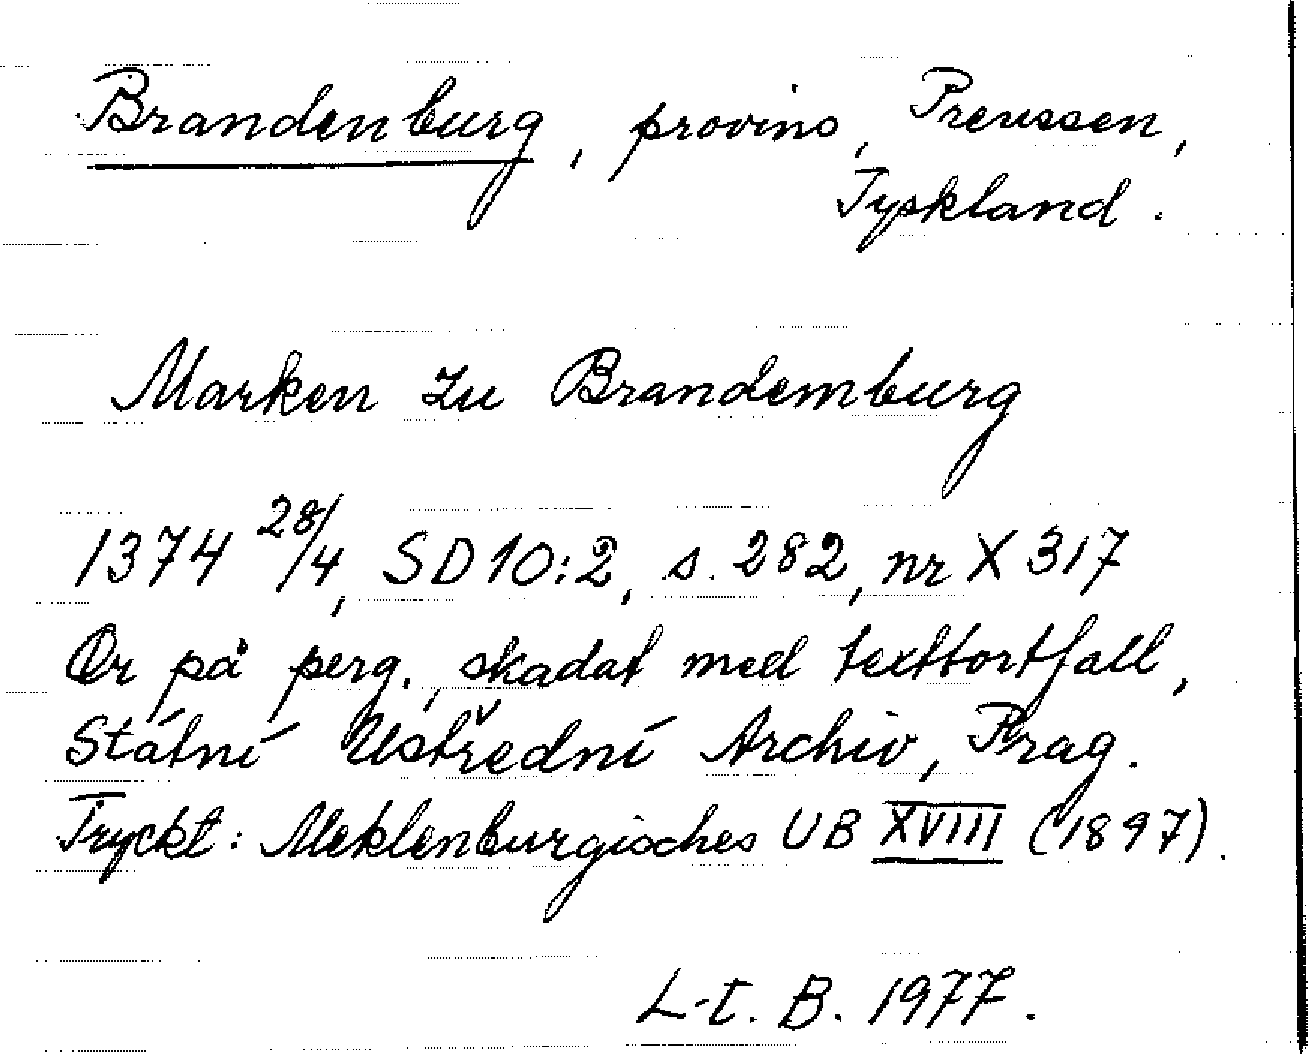 Brandenburg, provins, Preussen,
Tyskland.
Marken zu Brandemburg
1374 28/4, SD 10:2, s. 282, nr X 317
Or på perg., skadat med textbortfall,
Státní Ustřední Archiv, Prag.
Tryckt: Meklenburgisches UB XVIII (1897).
L-t. B. 1977.